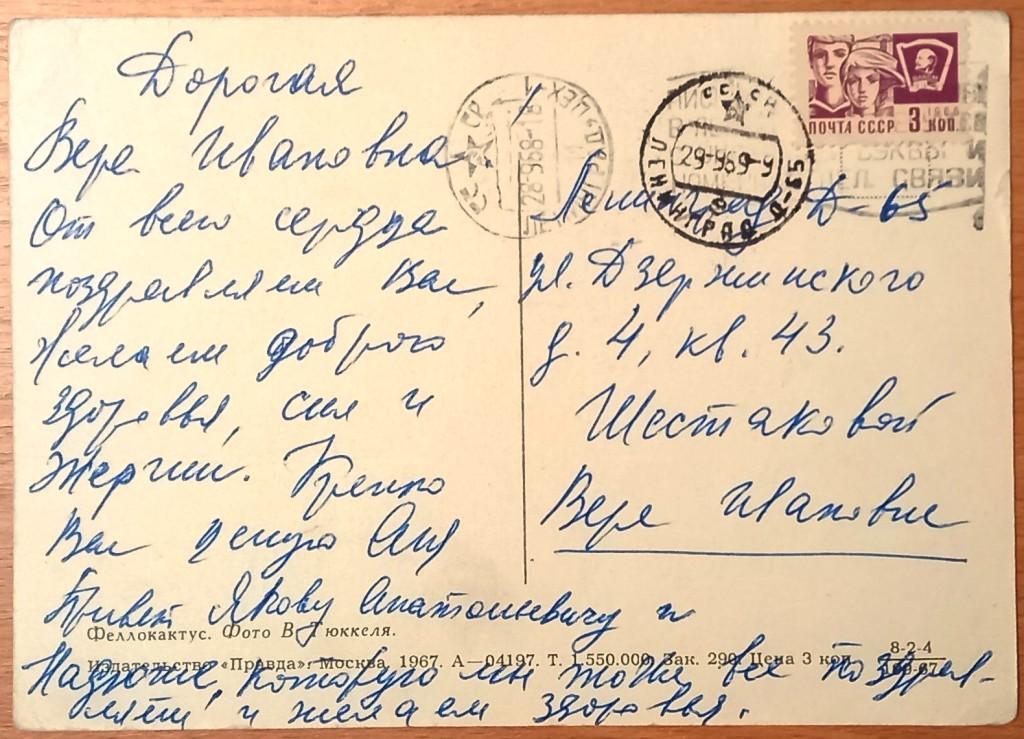 Дорогая
Вера Ивановна
От всего сердца
поздравляем Вас,
Желаем доброго
здоровья, сил и
энергии. Крепко
Вас целую Аня
Привет Якову Анатольевичу и
Надюше, которую мы тоже все поздрав-
ляем и желаем здоровья.
Феллокактус. Фото В. Тюккеля.
Издательство «Правда». Москва. 1967. А—04197. Т. 1.550.000. Зак. 290. Цена 3 коп.
8-2-4
67
ПОЧТА СССР 3 КОП
1966
СССР
28-9-68-18
СССР
29-9-69-9
ЛЕНИНГРАД Д-65
СВЯЗИ
Ленинград Д-65
ул. Дзержинского
д. 4, кв. 43.
Шестаковой
Вере Ивановне